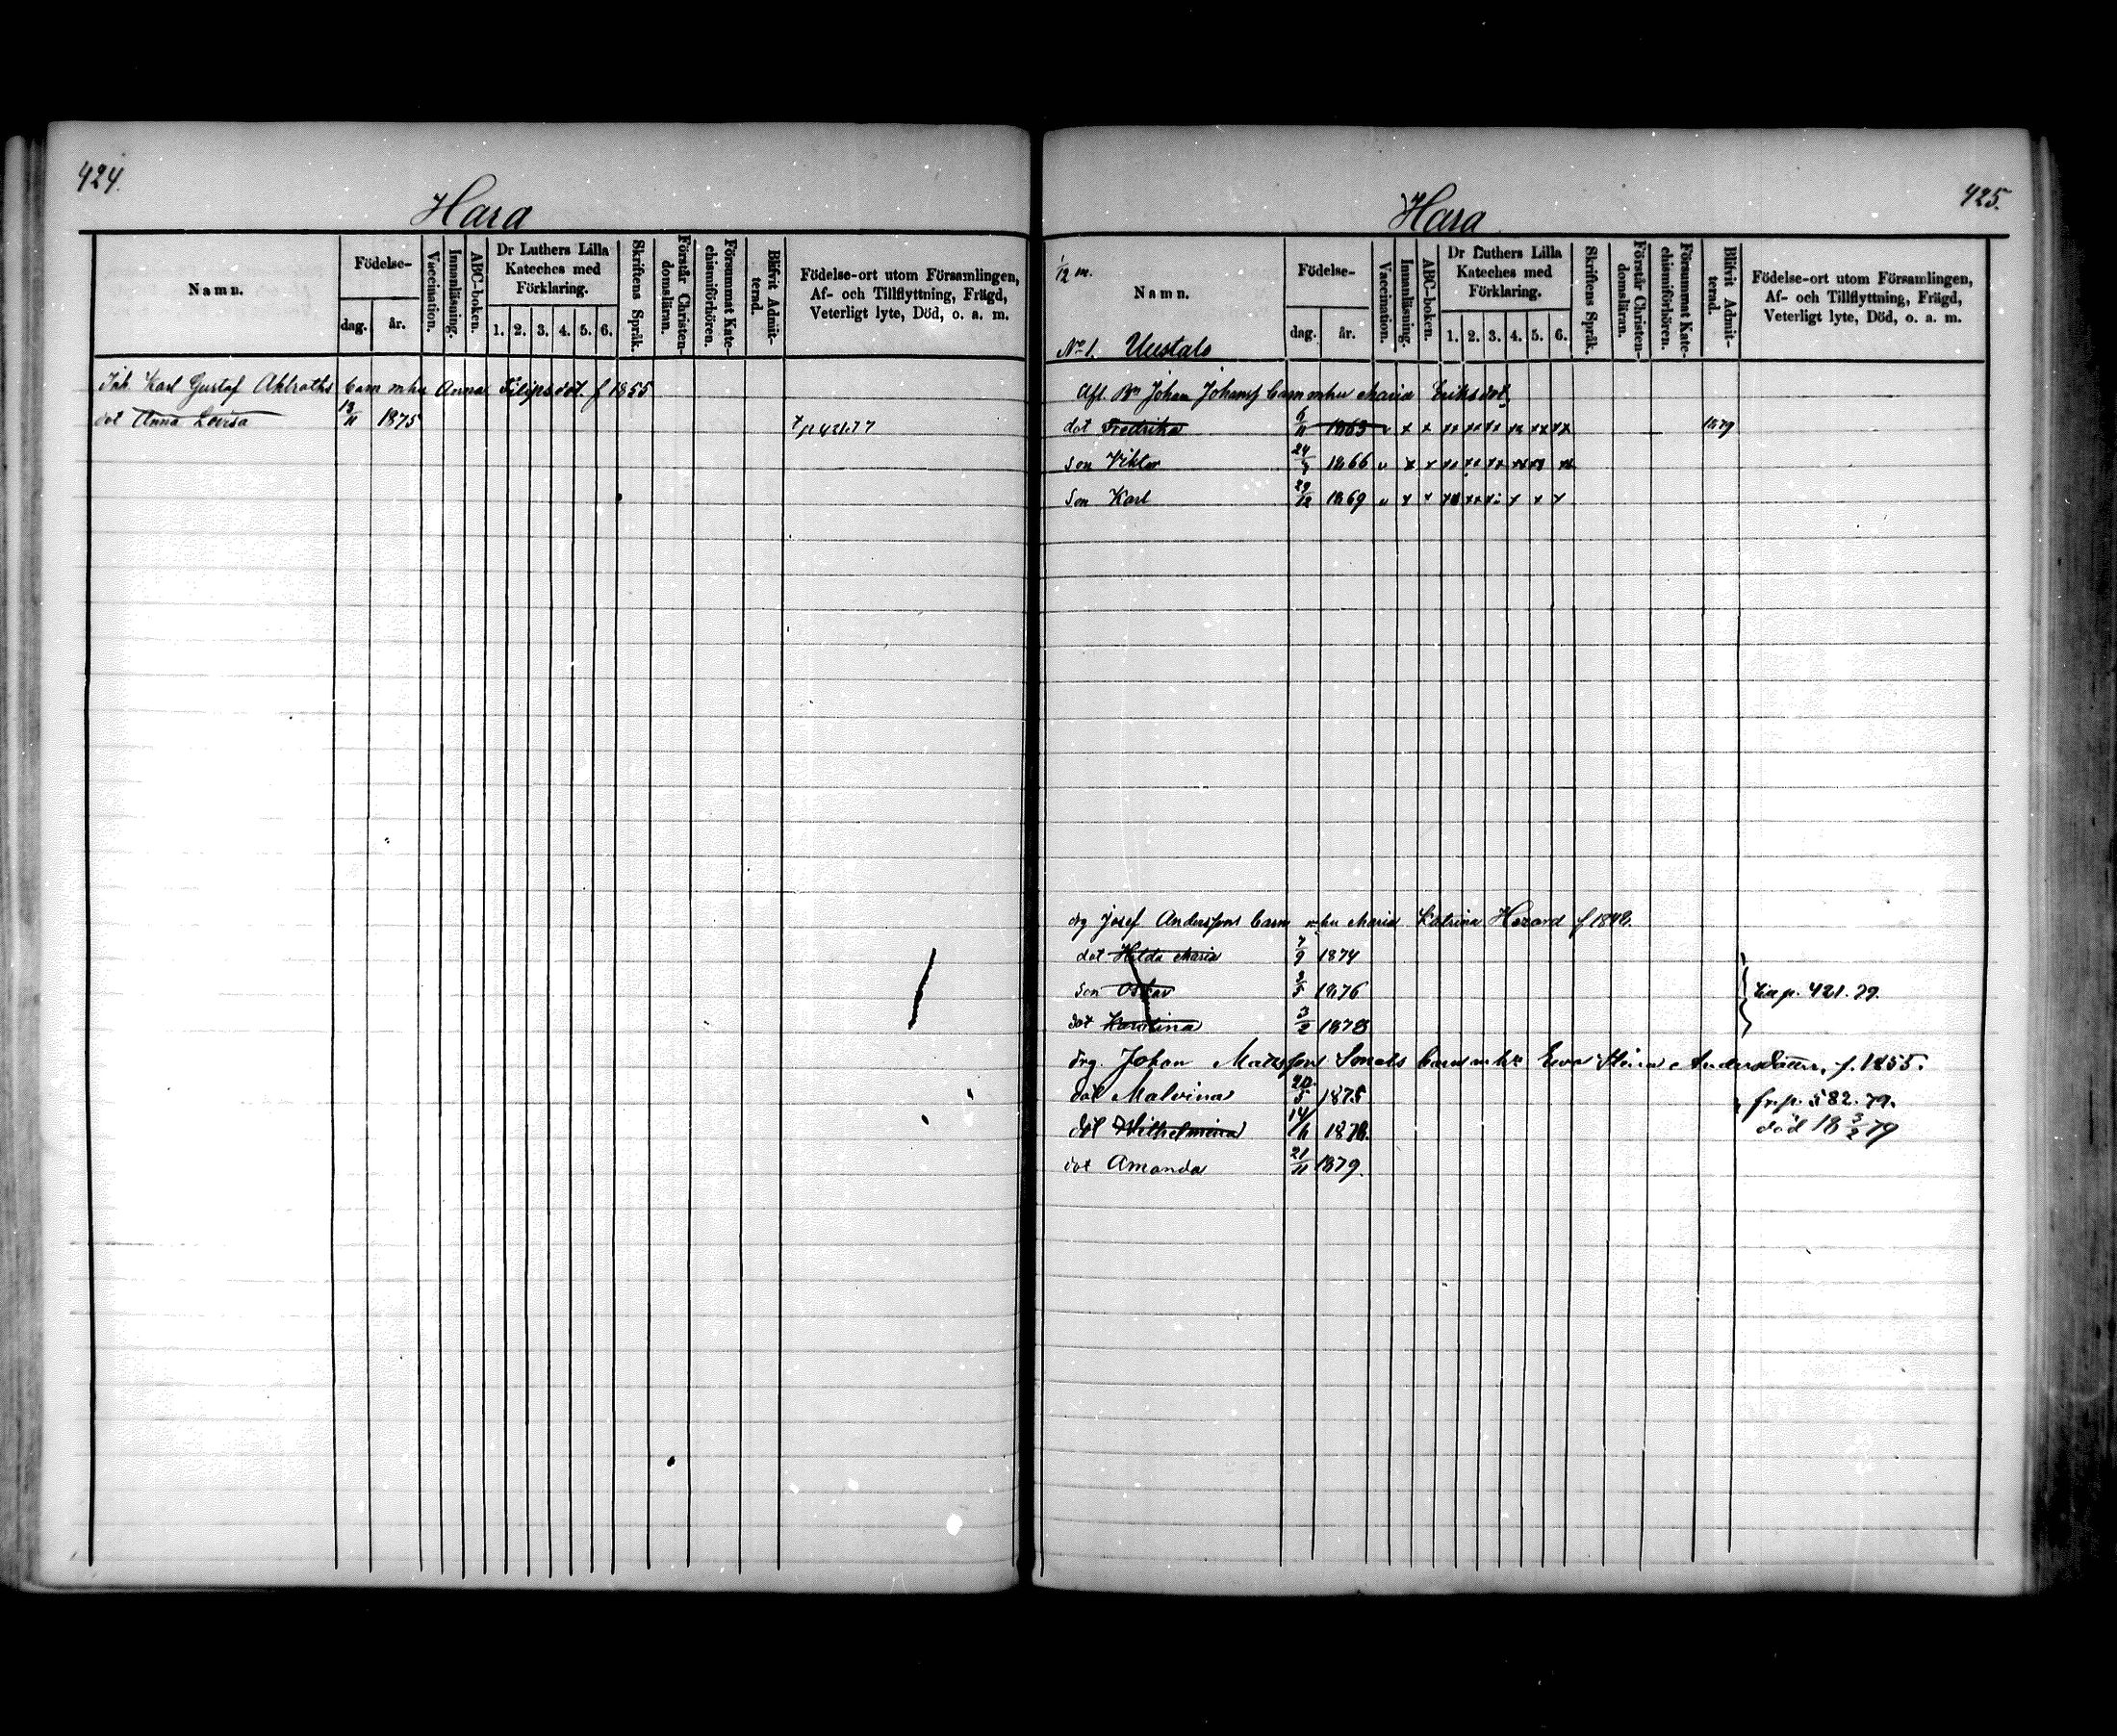 424.
Hara
Namn.
Födelse-
dag.
år.
Vaccination.
Innanläsning.
ABC-boken.
Dr Luthers Lilla
Kateches med
Förklaring.
1. 2. 3. 4. 5. 6.
Skriftens Språk.
Förstår Christen-
domsläran.
Försummat Kate-
chismiförhören.
Blifvit Admit-
terad.
Födelse-ort utom Församlingen,
Af- och Tillflyttning, Frägd,
Veterligt lyte, Död, o. a. m.
Inh. Karl Gustaf Ahlroths barn m hu Anna Filipsdot. f 1855
dot Anna Lovisa 13/11 1875
425.
Hara
1/12 m.
Namn.
No 1. Uustalo
Födelse-
dag.
år.
Vaccination.
Innanläsning.
ABC-boken.
Dr Luthers Lilla
Kateches med
Förklaring.
1. 2. 3. 4. 5. 6.
Skriftens Språk.
Förstår Christen-
domsläran.
Försummat Kate-
chismiförhören.
Blifvit Admit-
terad.
Födelse-ort utom Församlingen,
Af- och Tillflyttning, Frägd,
Veterligt lyte, Död, o. a. m.
Afl. Bn Johan Johanss barn m hu Maria Eriksdot
dot Fredrika 6/11 1863 v x x xx xx xx xx xx xx 1879
son Viktor 1866 v x x xx xx xx xx xx xx
son Karl 29/12 1869 v x x xx xx x x x
drg Josef Anderssons barn m hu Maria Katrina Hazard f 1842.
dot Hilda Maria 7/9 1874
son Oskar 2/5 1876
p. 421. 79.
dot Karolina 3/2 1878
drg. Johan Matsson barn m hu Eva Stina Andersdotter, f. 1855.
dot Malvina 20/5 1875 fr. p. 582. 79.
dot Wilhelmina 14/6 1878. död 18 3/2 79
dot Amanda 21/11 1879.